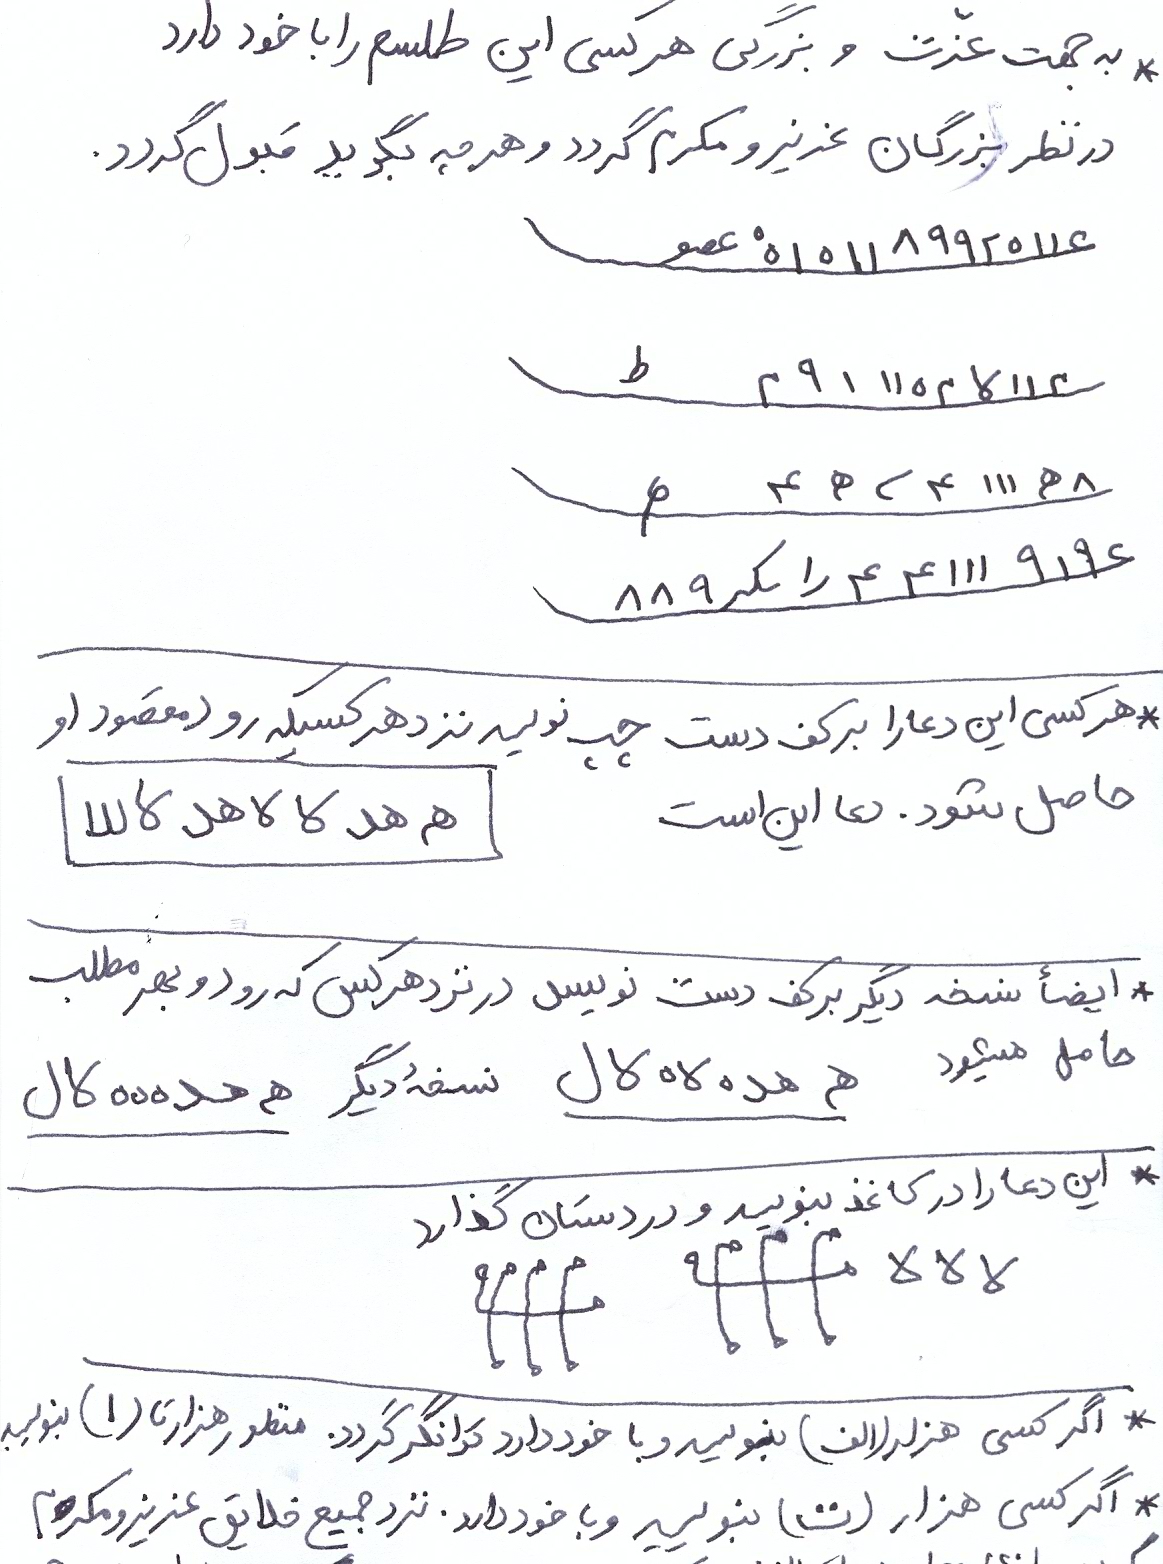 * به جهت عزّت و بزرگی هر کسی این طلسم را با خود دارد
در نظر بزرگان عزیز و مکرم گردد و هر چه بگوید قبول گردد.
ع۱۱۵۲۹۹۸ ۱۱۵۱۵° عصو
۹۱ ۱۱۵ ط
۸ ھ ۱۱۱ ۴ ھ ۴
ع۹۱۹ ۱۱۱ ۴ ۴ را ۸۸۹
* هر کسی این دعا را بر کف دست چپ نویسد نزد هر کسیکه رود مقصود او
حاصل شود. دعا این است
هم هد کا کا هد کا
* ایضاً نسخه دیگر بر کف دست نویسد در نزد هر کس که رود و بهر مطلب
حاصل میشود هم هد ه کا ه کال نسخهٔ دیگر هم هد ه ه ه کال
* این دعا را در کاغذ بنویسد و در دستان گذارد
لا لا لا
* اگر کسی هزار (الف) بنویسد و با خود دارد توانگر گردد. منظور هزارتا (ا) بنویسد
* اگر کسی هزار (ت) بنویسد و با خود دارد. نزد جمیع خلایق عزیز و مکرم